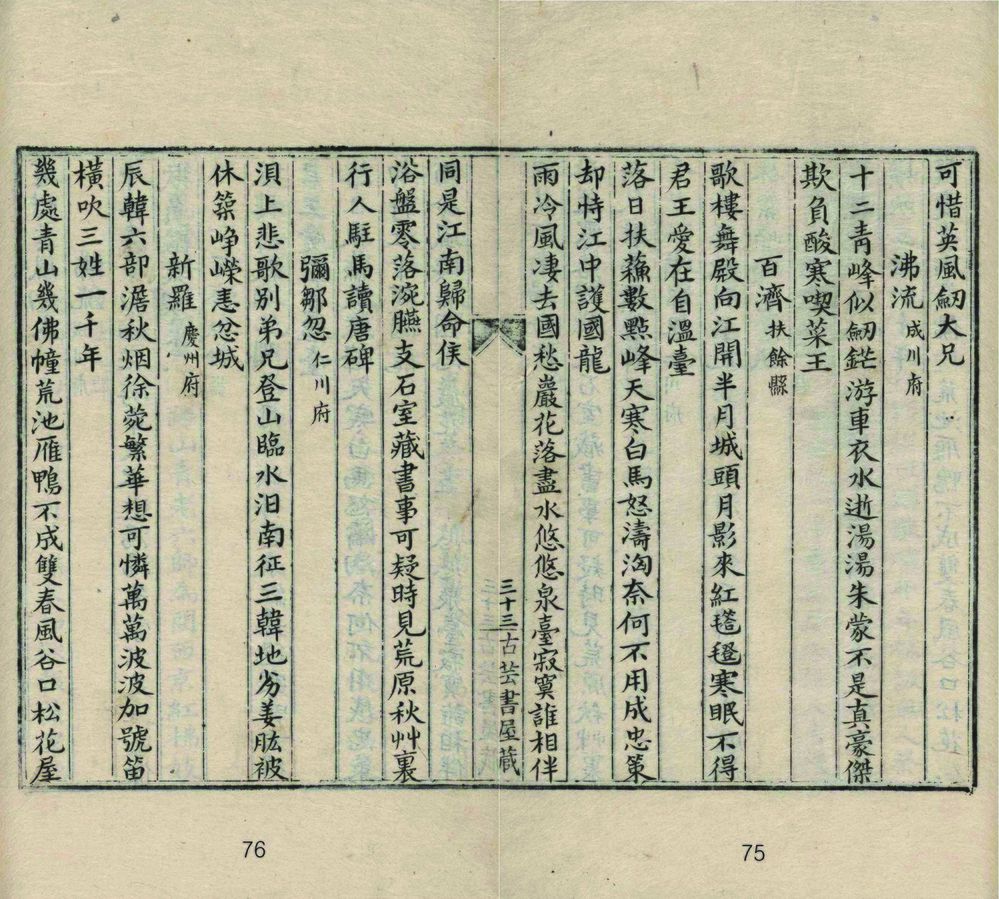 可惜英風劒大兄
沸流 成川府
十二青峰似劒鋩游車衣水逝湯湯朱蒙不是真豪傑
欺負酸寒喫菜王
百濟 扶餘縣
歌樓舞殿向江開半月城頭月影來紅毾㲪寒眠不得
君王愛在自溫臺
落日扶蘓數點峰天寒白馬怒濤洶奈何不用成忠策
却恃江中護國龍
雨冷風凄去國愁巖花落盡水悠悠泉臺寂寞誰相伴
三十三古芸書屋藏
同是江南歸命侯
浴盤零落涴臙支石室藏書事可疑時見荒原秋艸裏
行人駐馬讀唐碑
彌鄒忽 仁川府
浿上悲歌别弟兄登山臨水汨南征三韓地劣姜肱被
休築崢嶸恚忿城
新羅 慶州府
辰韓六部澹秋烟徐菀繁華想可憐萬萬波波加號笛
橫吹三姓一千年
幾處青山幾佛幢荒池雁鴨不成雙春風谷口松花屋
75
76